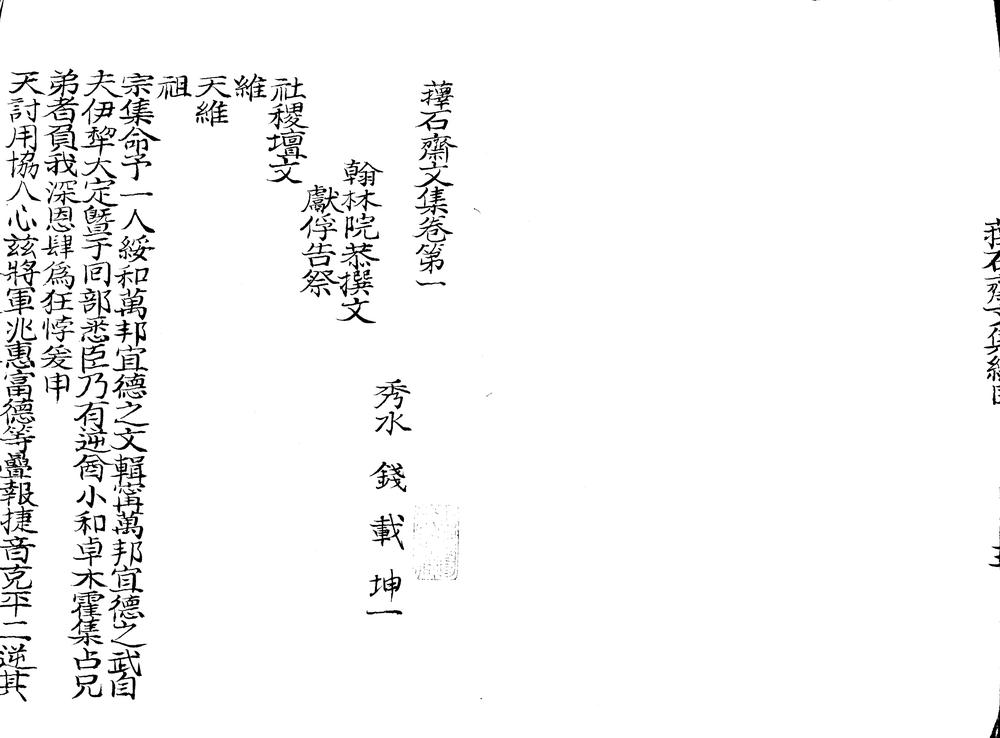 蘀石齋文集卷第一
秀水 錢 載 坤一
翰林院恭撰文
獻俘告祭
社稷壇文
維
天維
祖
宗集命予一人綏和萬邦宜德之文輯寜萬邦宜德之武自
夫伊犂大定曁于囘部悉臣乃有逆酋小和卓木霍集占兄
弟者負我深恩肆爲狂悖爰申
天討用協人心兹將軍兆惠富德等疊報捷音克平二逆其